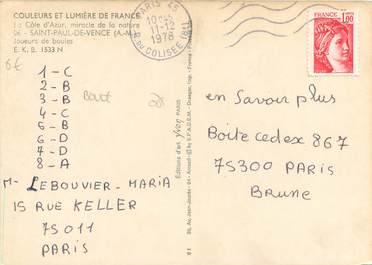 COULEURS ET LUMIÈRE DE FRANCE
La Côte d'Azur, miracle de la nature
06 - SAINT-PAUL-DE-VENCE (A.-M.)
Joueurs de boules
E. K. B. 1533 N
6€
1 - C
2 - B
3 - B
4 - C
5 - B
6 - D
7 - D
8 - A
Mme LEBOUVIER - MARIA
15 RUE KELLER
75011
PARIS
PARIS 45
1978
R. COLISEE (8E)
Éditions d'art yvon PARIS
1,00
en Savoir plus
Boite cedex 867
75300 PARIS
Brune